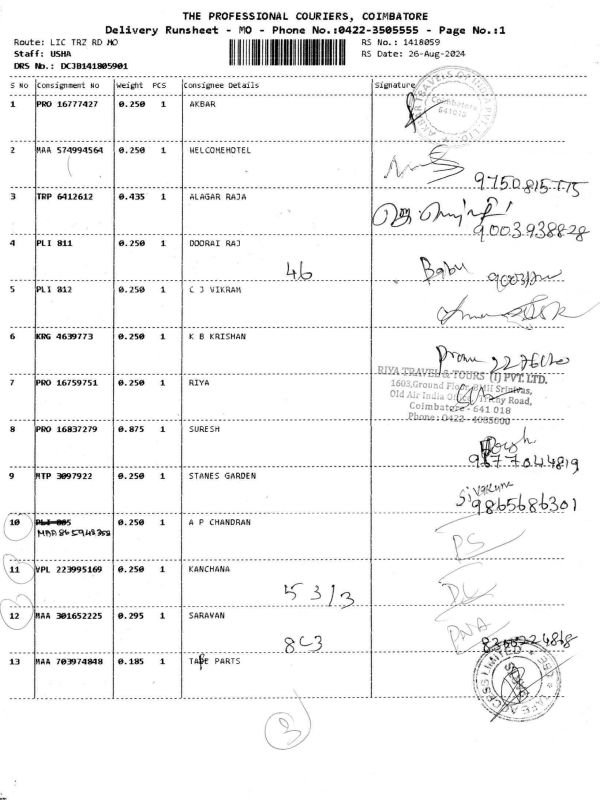 THE PROFESSIONAL COURIERS, COIMBATORE
Delivery Runsheet - MO - Phone No.:0422-3505555 - Page No.:1
Route: LIC TRZ RD MO RS No.: 1418059
Staff: USHA RS Date: 26-Aug-2024
DRS No.: DCJB141805901
S No Consignment No Weight PCS Consignee Details Signature
1 PRO 16777427 0.250 1 AKBAR
Coimbatore
641018
2 MAA 574994564 0.250 1 WELCOMEHOTEL
9750815775
3 TRP 6412612 0.435 1 ALAGAR RAJA
9003938828
4 PLI 811 0.250 1 DOORAI RAJ
46 Babu
5 PLI 812 0.250 1 C J VIKRAM
6 KRG 4639773 0.250 1 K B KRISHAN
RIYA TRAVEL & TOURS (I) PVT. LTD.
7 PRO 16759751 0.250 1 RIYA
1603,Ground Floor, Srinivas,
Old Air India Trichy Road,
Coimbatore - 641 018
Phone : 0422 - 4085000
8 PRO 16837279 0.875 1 SURESH
9677044819
9 MTP 3097922 0.250 1 STANES GARDEN
9865686301
10 0.250 1 A P CHANDRAN
PS
11 VPL 223995169 0.250 1 KANCHANA
53/3
12 MAA 301652225 0.295 1 SARAVAN
8C3
13 MAA 703974848 0.185 1 TAPE PARTS
3